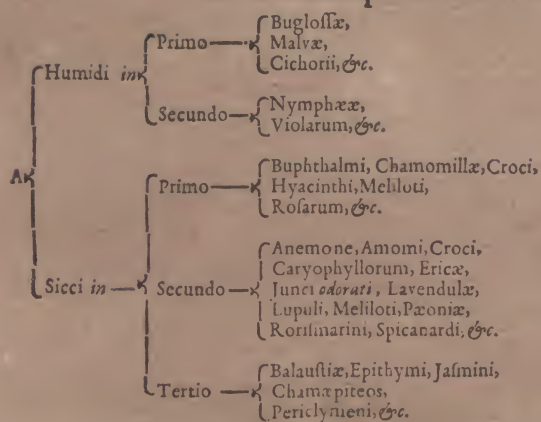 Primo Bugloſſæ,
Malvæ,
Cichorii, &c.
Humidi in
Secundo Nymphææ,
Violarum, &c.
A
Primo Buphthalmi, Chamomillæ, Croci,
Hyacinthi, Meliloti,
Roſarum, &c.
Sicci in Secundo Anemone, Amomi, Croci,
Caryophyllorum, Ericæ,
Junci odorati, Lavendulæ,
Lupuli, Meliloti, Pæoniæ,
Roriſmarini, Spicanardi, &c.
Tertio Balauſtiæ, Epithymi, Jaſmini,
Chamæpiteos,
Periclymeni, &c.